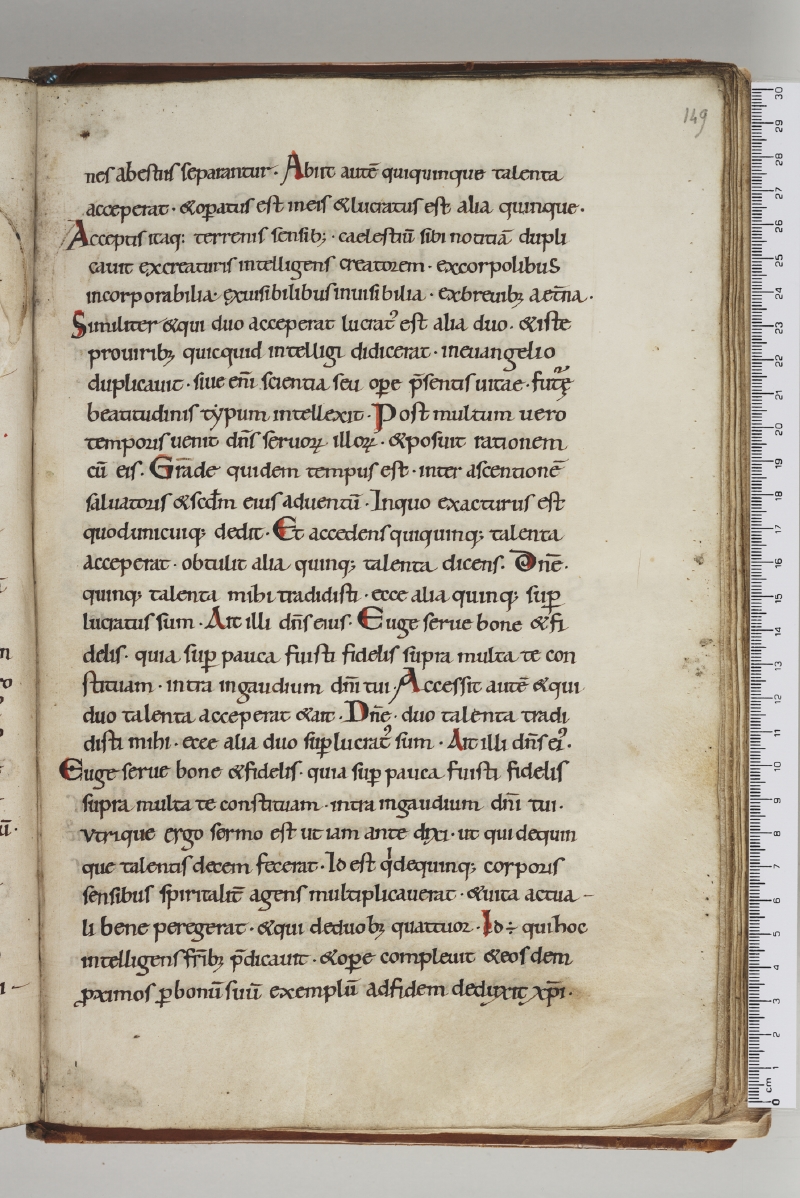 149
nes abestiis separantur. Abiit autē quiquinque talenta
acceperat. &opatus est ineis &lucratus est alia quinque.
Acceptis itaq; terrenis sensib; caelestiū sibi notitiā dupli
cauit excreaturis intelligens creatorem. excorpolibus
incorporabilia. exuisibilibus inuisibilia. exbreuib; aet̄na.
Similiter &qui duo acceperat lucrat᾽ est alia duo. &iste
prouirib; quicquid intelligi didicerat. ineuangelio
duplicauit. siue eni̅ scientia seu op̲e p̄sentis uitae. futurę
beatitudinis typum intellexit. Post multum uero
temporis uenit dn̄s seruoꝝ illoꝝ. &posuit rationem
cū eis. Grāde quidem tempus est. inter ascentionē
saluatoris &scd̄m eius aduentū. Inquo exacturus est
quodunicuiq; dedit. Et accedens quiquinq; talenta
acceperat. obtulit alia quinq; talenta dicens. Dn̄e.
quinq; talenta mihi tradidisti. ecce alia quinq; suꝑ
lucratus sum. Ait illi dn̄s eius. Euge serue bone &fi
delis. quia suꝑ pauca fuisti fidelis supra multa te con
stituam. intra ingaudium dn̄i tui. Accessit autē &qui
duo talenta acceperat &ait. Dn̄e. duo talenta tradi
disti mihi. ecce alia duo suꝑlucrat᾽ sum. Ait illi dn̄s ei᾽.
Euge serue bone &fidelis. quia suꝑ pauca fuisti fidelis
supra multa te constituam. intra ingaudium dn̄i tui.
Vtrique ergo sermo est ut iam ante dixi. ut qui dequin
que talentis decem fecerat. Id est qd̄ dequinq; corporis
sensibus spiritalit̄ agens multiplicauerat. &uita actua
li bene peregerat. &qui deduob; quattuor. Id ÷ quihoc
intelligens fr̄ib; p̄dicauit. &oꝑe compleuit &eosdem
ꝓximos ꝑ bonū suū exemplū adfidem deduxit xp̄i.
30
29
28
27
26
25
24
23
22
21
20
19
18
17
16
15
14
13
12
11
10
9
8
7
6
5
4
3
2
1
cm
0